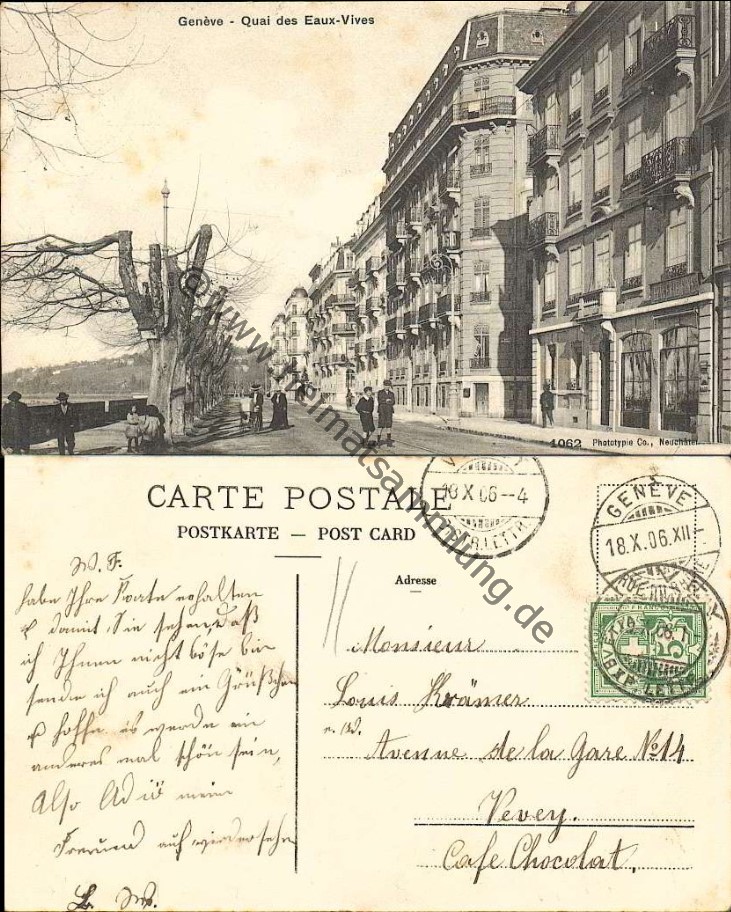 Genève - Quai des Eaux-Vives
1062 Phototypie Co., Neuchâtel
©www.heimatsammlung.de
CARTE POSTALE
POSTKARTE — POST CARD
Adresse
18 X 06--4
GENÈVE
18.X.06.XII-
W. F.
habe Ihre Karte erhalten
& damit Sie sehen, daß
ich Ihnen nicht böse bin
sende ich auch ein Grüßchen
& hoffe es werde ein
anderes mal schön sein,
Also Adiö mein
Freund auf wiedersehn
Monsieur
Louis Krämer
Avenue de la Gare No 14
Vevey.
Cafe Chocolat.